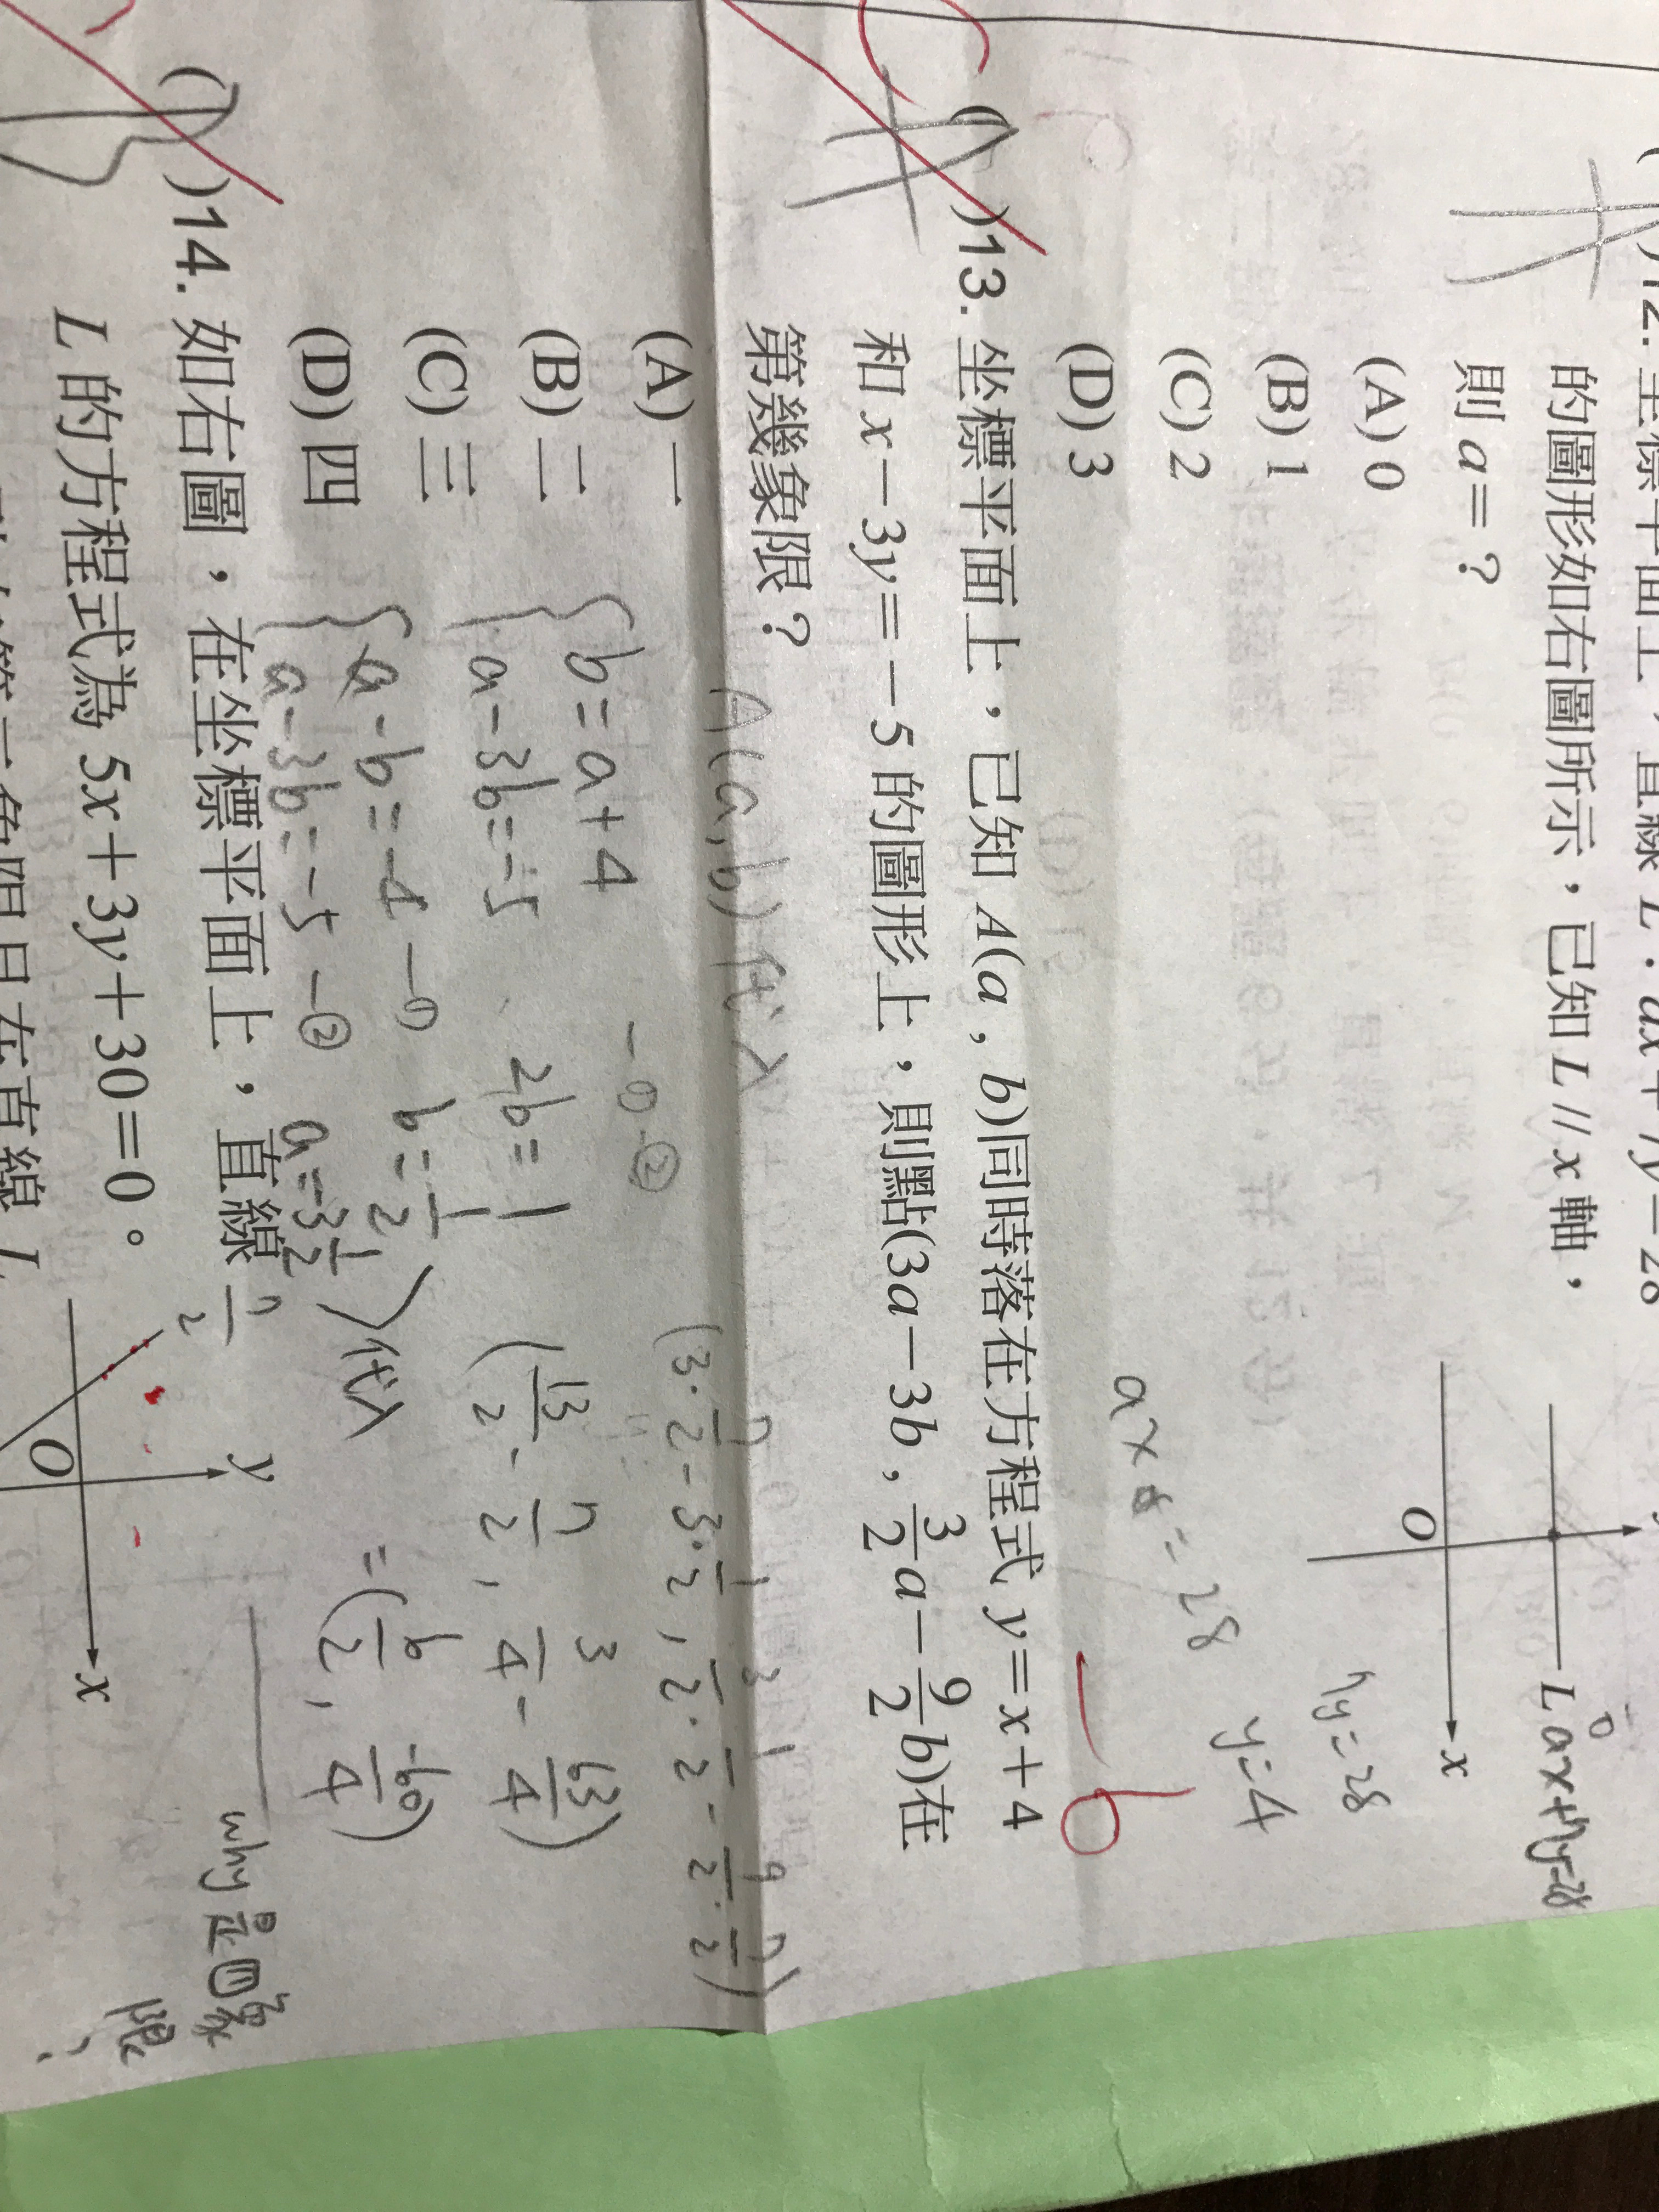 )12. 坐標平面上，直線 L：ax＋7y＝28
的圖形如右圖所示，已知 L // x 軸，
則 a＝？
(A) 0
(B) 1
(C) 2
(D) 3
L
x
O
ax+7y=28
0
7y=28
y=4
ax = 28
( )13. 坐標平面上，已知 A(a , b)同時落在方程式 y＝x＋4
和 x－3y＝－5 的圖形上，則點(3a－3b , 3/2 a－9/2 b)在
第幾象限？
(A) 一
(B) 二
(C) 三
(D) 四
-6
A(a,b)代入
b=a+4
a-3b=-5
a-b=-4 -①
a-3b=-5 -②
①-②
2b=1
b=1/2
a=-3 1/2
7/2
代入
(3·7/2-3·1/2, 3/2·1/2-9/2·7/2)
(13/2-7/2, 3/4-63/4)
=(6/2, -60/4)
why是四象
限?
( )14. 如右圖，在坐標平面上，直線
L 的方程式為 5x＋3y＋30＝0。
y
x
O